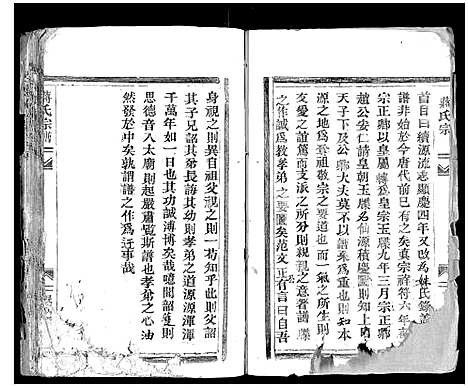 蔣氏宗
首目曰續源流志顯慶四年又改為姓氏錄
譜非始於今唐代前已有之矣真宗祥符六年
宗正卿以皇屬籍為皇宗玉牒九年三月宗正卿
趙公安仁請皇朝玉牒名仙源積慶圖則知本
天子下及公卿大夫莫不以譜系為重也至於
源之地為尊祖敬宗之要道也而一氣之所生則
友愛之誼寓焉支派之所分則親親之意著譜牒
之作誠為敦孝弟之要圖矣范文正公有言曰自吾
身視之則異自祖父視之則一苟知此則父詔
其子兄詔其弟長詔其幼則孝弟之道源源渾渾
千萬年如一日也其功誠溥博矣哉噫聞韶則
思德音入太廟則起嚴肅覽斯譜也孝弟之心油
然發於中矣孰謂譜之作為迂事哉
蔣氏宗譜